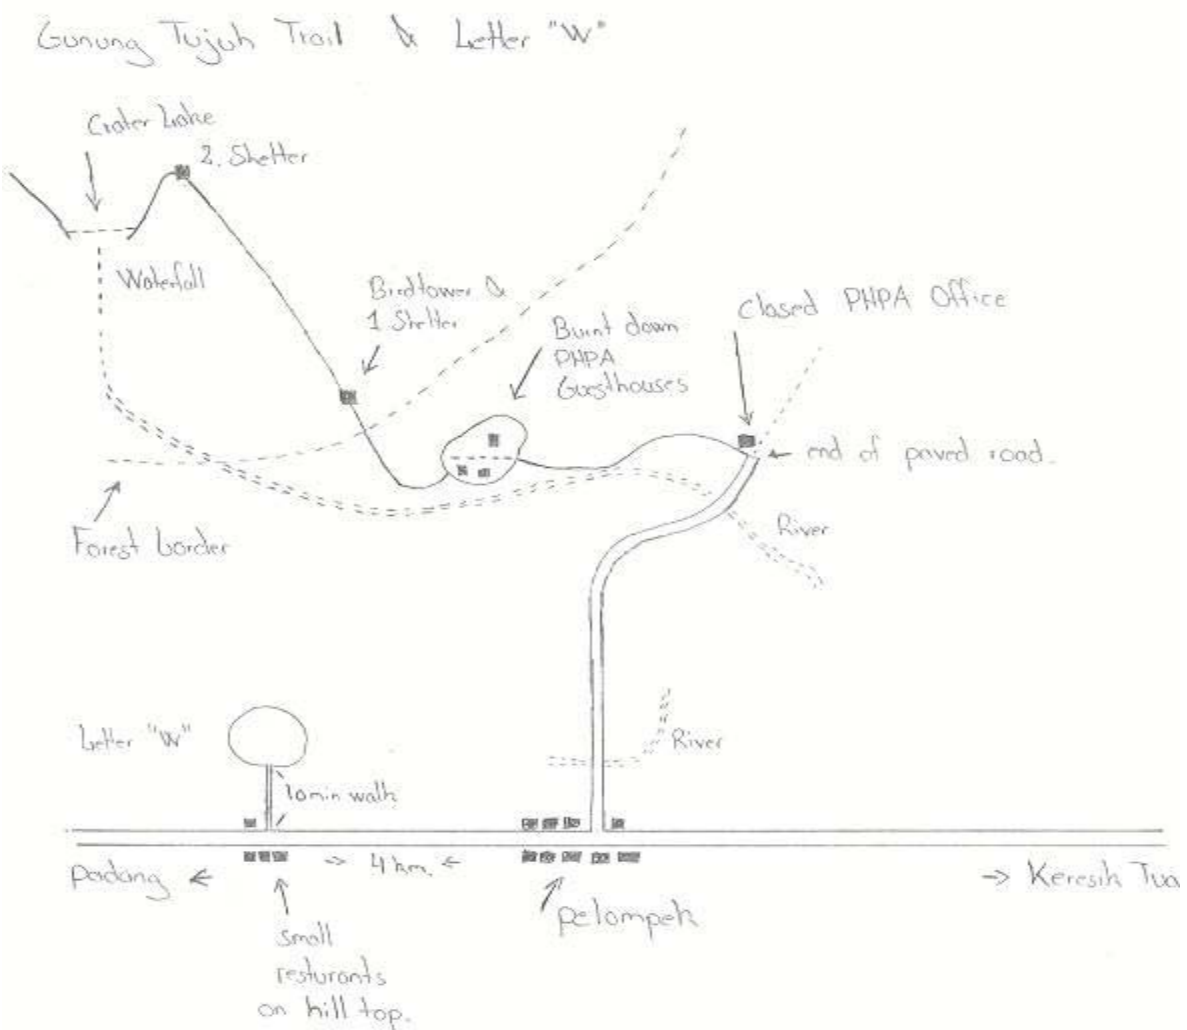 Gunung Tujuh Trail & Letter "W"
Crater Lake
2. Shelter
Waterfall
Birdtower &
1 Shelter
Burnt down
PHPA
Guesthouses
Closed PHPA Office
end of paved road.
Forest border
River
Letter "W"
10min walk
River
Padang
4 km.
Keresik Tua
Pelompek
Small
resturants
on hill top.